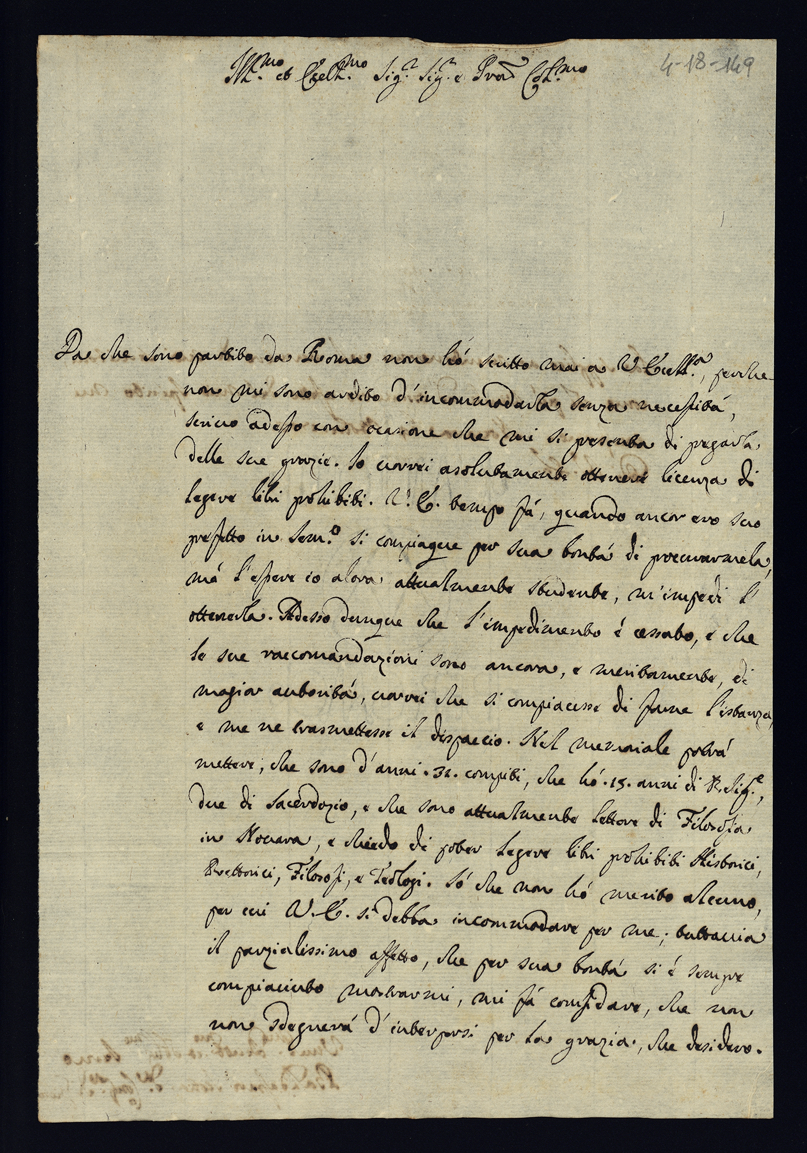 4-18-149
Ill.mo et Eccell.mo Sig.r Sig.r e Pron Col.mo
Da che sono partito da Roma non hó scritto mai a V Eccell.a, perche
non mi sono ardito d'incommodarla senza necessitá,
scrivo adesso con ocasione che mi si presenta di pregarla
delle sue grazie. Io vorrei asolutamente ottenere licenza di
legere libri prohibiti. V.E. tempo fá, quando ancor ero suo
prefetto in Sem.o si compiaque per sua bontá di procurarmela,
má l'essere io alora attualmente studente, m'impedi l'
ottenerla. Adesso dunque che l'impedimento é cessato, e che
le sue raccomandazioni sono ancora, e meritamente, di
magior autoritá, vorrei che si compiacesse di farne l'istanza,
e me ne trasmettesse il dispaccio. Nel memoriale potrá
mettere, che sono d'anni .31. compiti, che hó .15. anni di Relig.e,
due di Sacerdozio, e che sono attualmente lettore di Filosofia
in Novara, e chiedo di poter legere libri prohibiti Historici,
Rettorici, Filosofi, e Teologi. Só che non hó merito alcuno,
per cui V.E. si debba incommodare per me; tuttavia
il parzialissimo affetto, che per sua bontá si é sempre
compiaciuto mostrarmi, mi fá confidare, che non
non sdegnerá d'interporsi per la grazia, che desidero.